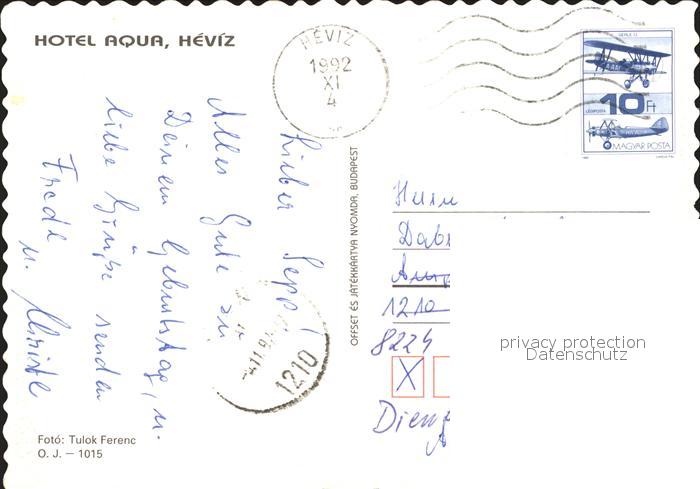 HOTEL AQUA, HÉVÍZ
HÉVÍZ
1992
XI
4
GERLE 13
10 Ft
LÉGIPOSTA
MAGYAR POSTA
Lieber Sepp!
Alles Gute zu
Deinem Geburtstag, u.
liebe Grüße senden
Friedl
u. Christl
1210
OFFSET ÉS JÁTÉKKÁRTYA NYOMDA, BUDAPEST
Herrn
1210
8224
X
privacy protection
Datenschutz
Fotó: Tulok Ferenc
O. J. – 1015